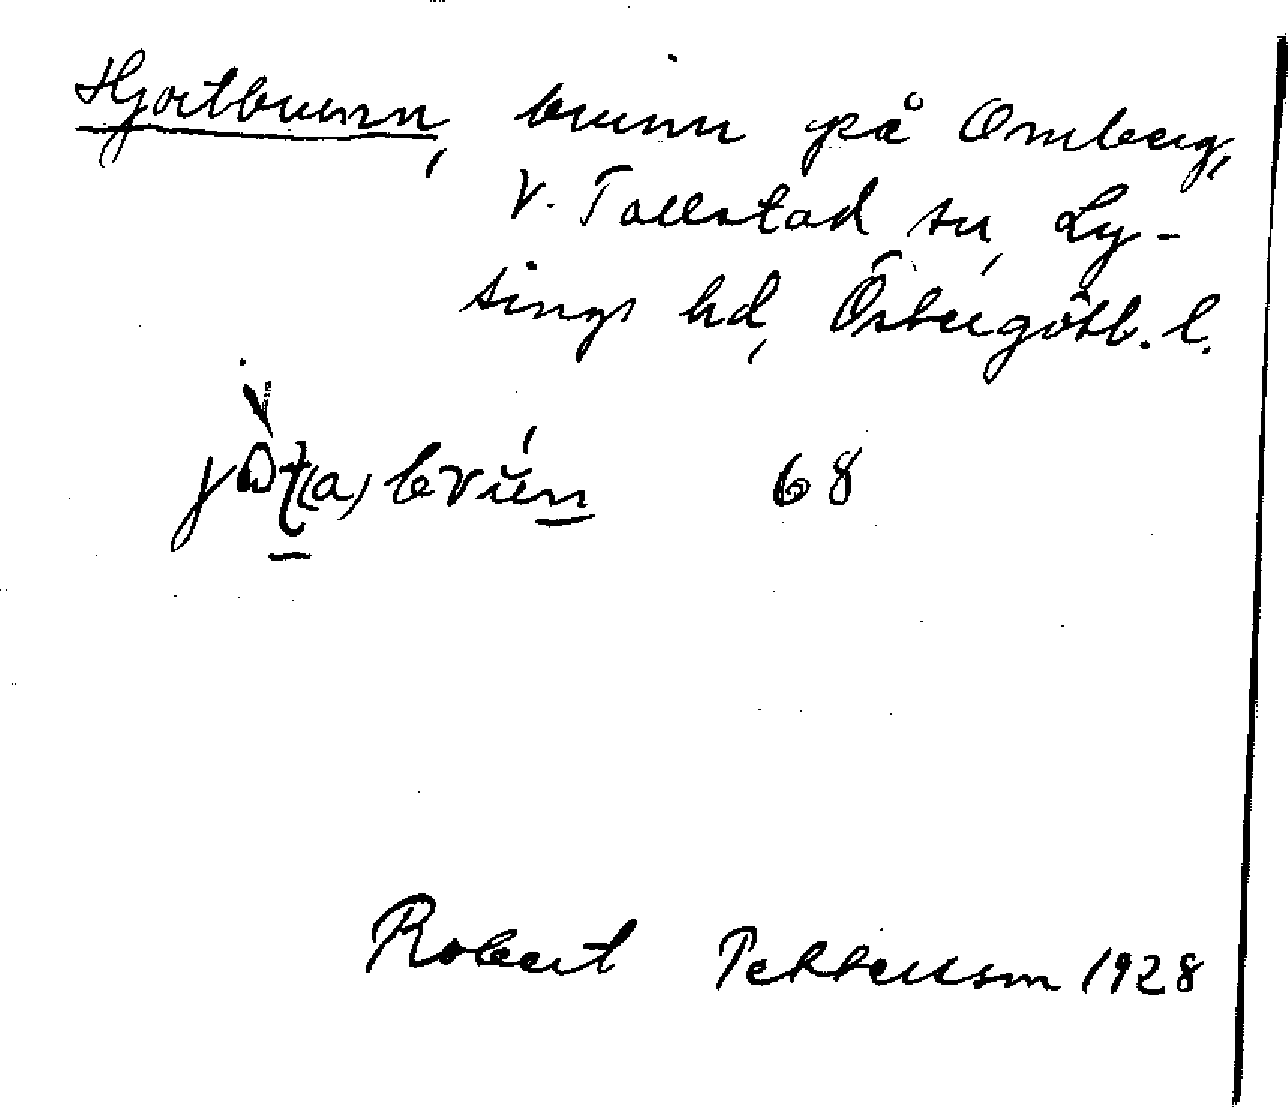 Hjortbrunn, brunn på Omberg,
V. Tollstad sn, Ly-
sings hd, Östergötl. l.
68
Robert Pettersson 1928